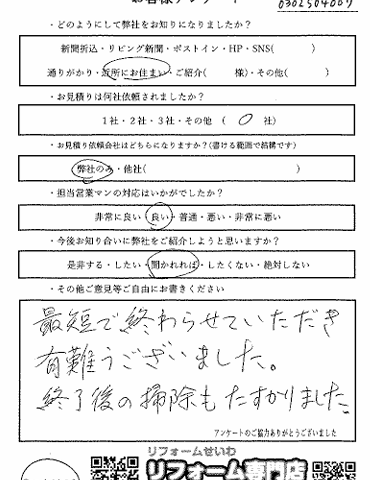 0302504007
・どのようにして弊社をお知りになりましたか？
新聞折込・リビング新聞・ポストイン・HP・SNS(　　　)
通りがかり・近所にお住まい・ご紹介(　　　様)・その他(　　　)
・お見積りは何社依頼されましたか？
1社・2社・3社・その他　(　0　社)
・お見積り依頼会社はどちらになりますか？(書ける範囲で結構です)
弊社のみ・他社(　　　)
・担当営業マンの対応はいかがでしたか？
非常に良い・良い・普通・悪い・非常に悪い
・今後お知り合いに弊社をご紹介しようと思いますか？
是非する・したい・聞かれれば・したくない・絶対しない
・その他ご意見等ご自由にお書きください
最短で終わらせていただき
有難うございました。
終了後の掃除もたすかりました
アンケートのご協力ありがとうございました
リフォームせいわ
リフォーム専門店